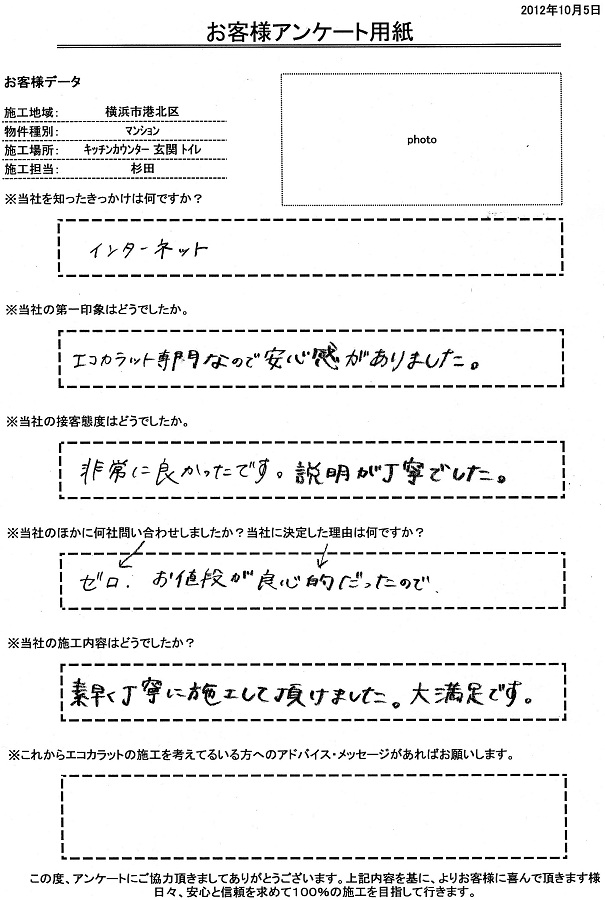 2012年10月5日
お客様アンケート用紙
お客様データ
施工地域: 横浜市港北区
物件種別: マンション
施工場所: キッチンカウンター 玄関 トイレ
施工担当: 杉田
photo
※当社を知ったきっかけは何ですか？
インターネット
※当社の第一印象はどうでしたか。
エコカラット専門なので安心感がありました。
※当社の接客態度はどうでしたか。
非常に良かったです。説明が丁寧でした。
※当社のほかに何社問い合わせしましたか？当社に決定した理由は何ですか？
ゼロ. お値段が良心的だったので.
※当社の施工内容はどうでしたか？
素早く丁寧に施工して頂けました。大満足です。
※これからエコカラットの施工を考えてるいる方へのアドバイス・メッセージがあればお願いします。
この度、アンケートにご協力頂きましてありがとうございます。上記内容を基に、よりお客様に喜んで頂きます様
日々、安心と信頼を求めて100％の施工を目指して行きます。